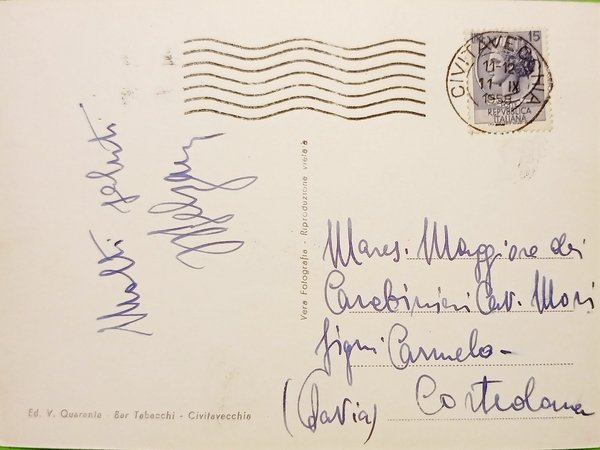 Molti saluti
CIVITAVECCHIA
11-12
11 IX
15
REPVBBLICA
ITALIANA
Vera Fotografia - Riproduzione vietata
Mares. Maggiore dei
Carabinieri Cav. Mori
figni Carmelo-
(Pavia) Corteolona
Ed. V. Quaranta - Bar Tabacchi - Civitavecchia